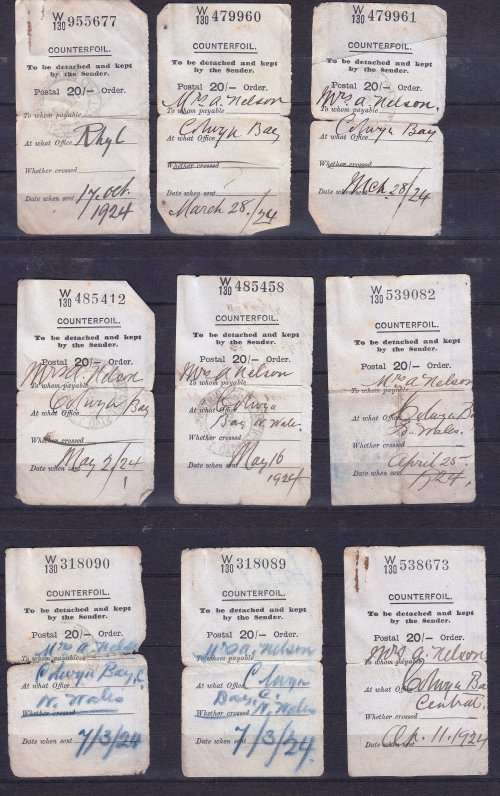 W
130 955677
COUNTERFOIL.
To be detached and kept
by the Sender.
Postal 20/- Order.
To whom payable
At what Office Rhyl
Whether crossed
Date when sent 17. Oct.
1924
W
130 479960
COUNTERFOIL.
To be detached and kept
by the Sender.
Postal 20/- Order.
Mrs. A. Nelson
To whom payable
Colwyn Bay
At what Office
Whether crossed
Date when sent
March 28./24
W
130 479961
COUNTERFOIL.
To be detached and kept
by the Sender.
Postal 20/- Order.
Mrs A. Nelson.
To whom payable
Colwyn Bay
At what Office
Whether crossed
Date when sent Mch. 28/24
W
130 485412
COUNTERFOIL.
To be detached and kept
by the Sender.
Postal 20/- Order.
Mrs A Nelson
To whom payable
At what Office Colwyn Bay
Whether crossed
Date when sent May 2/24
W
130 485458
COUNTERFOIL.
To be detached and kept
by the Sender.
Postal 20/- Order.
Mrs A Nelson
To whom payable
At what Office Colwyn
Bay N. Wales.
Whether crossed
Date when sent May 16
1924
W
130 539082
COUNTERFOIL.
To be detached and kept
by the Sender.
Postal 20/- Order.
Mrs A Nelson
To whom payable
At what Office Colwyn Ba
N. Wales.
Whether crossed
April 25.
Date when sent 1924
W
130 318090
COUNTERFOIL.
To be detached and kept
by the Sender.
Postal 20/- Order.
Mrs A. Nelson
To whom payable
Colwyn Bay,
At what Office
N. Wales
Whether crossed
Date when sent 7/3/24
W
130 318089
COUNTERFOIL.
To be detached and kept
by the Sender.
Postal 20/- Order.
Mrs A. Nelson
To whom payable
At what Office Colwyn
Bay N. Wales
Whether crossed
Date when sent 7/3/24.
W
130 538673
COUNTERFOIL.
To be detached and kept
by the Sender.
Postal 20/- Order.
Mrs A. Nelson
To whom payable
At what Office Colwyn Ba
Central.
Whether crossed
Date when sent Ap. 11. 1924